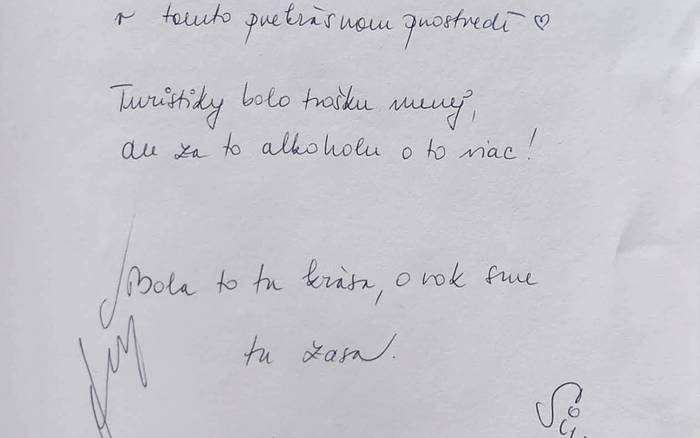 v tomto prekrásnom prostredí ♡
Turistiky bolo trošku menej,
ale za to alkoholu o to viac!
Bola to tu krása, o rok sme
tu zasa.